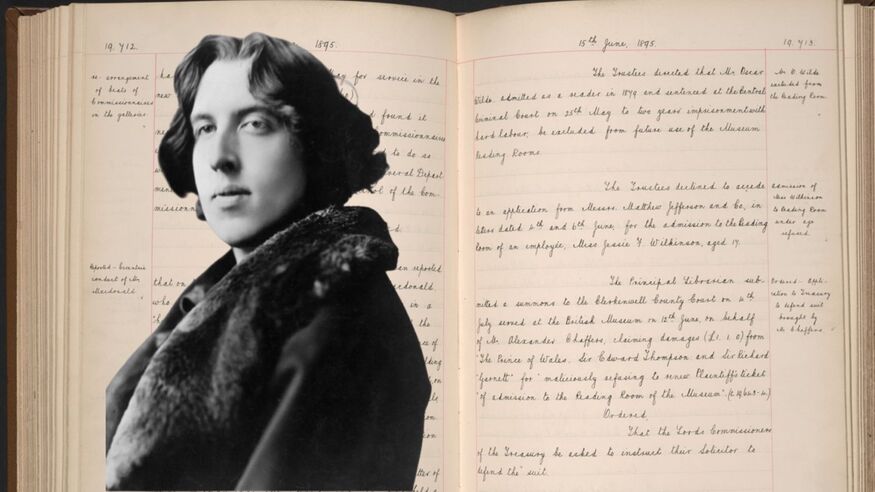 19,712.
1895.
re-arrangement
of beats of
Commissionnaires
in the galleries
ha
May for service in the
new
found it
Commissionnaires
to do so
eral Depart
ment
ol of the Com-
missionn
Reported-
conduct of Mr
Macdonald.
an reported
that on
cdonald
who
in a
the
ce of
15th June, 1895.
19,713.
The Trustees directed that Mr. Oscar
Wilde, admitted as a reader in 1879 and sentenced at the Central
Criminal Court on 25th May to two years' imprisonment with
hard labour, be excluded from future use of the Museum
Reading Rooms.
Mr. O. Wilde
excluded from
the Reading Room.
The Trustees declined to accede
to an application from Messrs. Matthew Jefferson and Co., in
letters dated 4th and 6th June, for the admission to the Reading
Room of an employée, Miss Jessie F. Wilkinson, aged 17.
Admission of
Miss Wilkinson
to Reading Room
under age
refused.
The Principal Librarian sub-
mitted a summons to the Clerkenwell County Court on 4th
July served at the British Museum on 12th June, on behalf
of Mr. Alexander Chaffers, claiming damages (£1. 1. 0) from
"The Prince of Wales, Sir Edward Thompson and Sir Richard
"Garnett" for "maliciously refusing to renew Plaintiff's ticket
"of admission to the Reading Room of the Museum".
Ordered
That the Lords Commissioners
of the Treasury be asked to instruct their Solicitor to
defend the suit.
Ordered - Appli-
cation to Treasury
to defend suit
brought by
Mr Chaffers